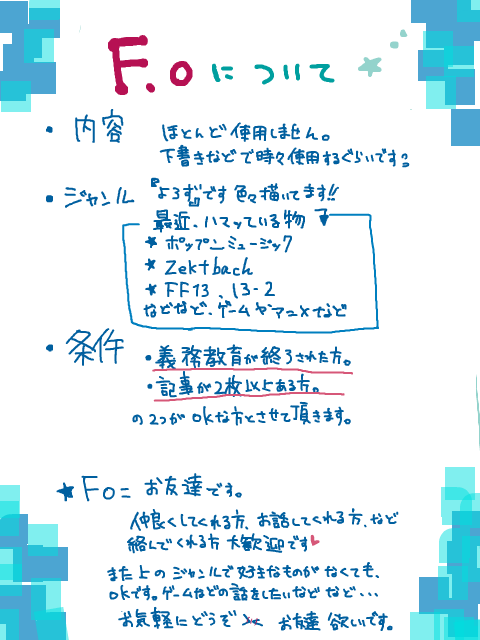 F.o について
・内容 ほとんど使用しません。
下書きなどで時々使用するぐらいです?
・ジャンル 『よろず』です 色々描いてます!!
最近、ハマッている物
★ ポップンミュージック
★ Zektbach
★ FF13、13-2
などなど、ゲームやアニメなど
・条件 ・義務教育が終了された方。
・記事が2枚以上ある方。
の2つが okな方とさせて頂きます。
★ Fo= お友達です。
仲良くしてくれる方、お話してくれる方、など
絡んでくれる方 大歓迎です♥
また上の ジャンルで好きなものが なくても、
okです。ゲームなどの話をしたいなど など・・・
お気軽にどうぞ お友達 欲いです。